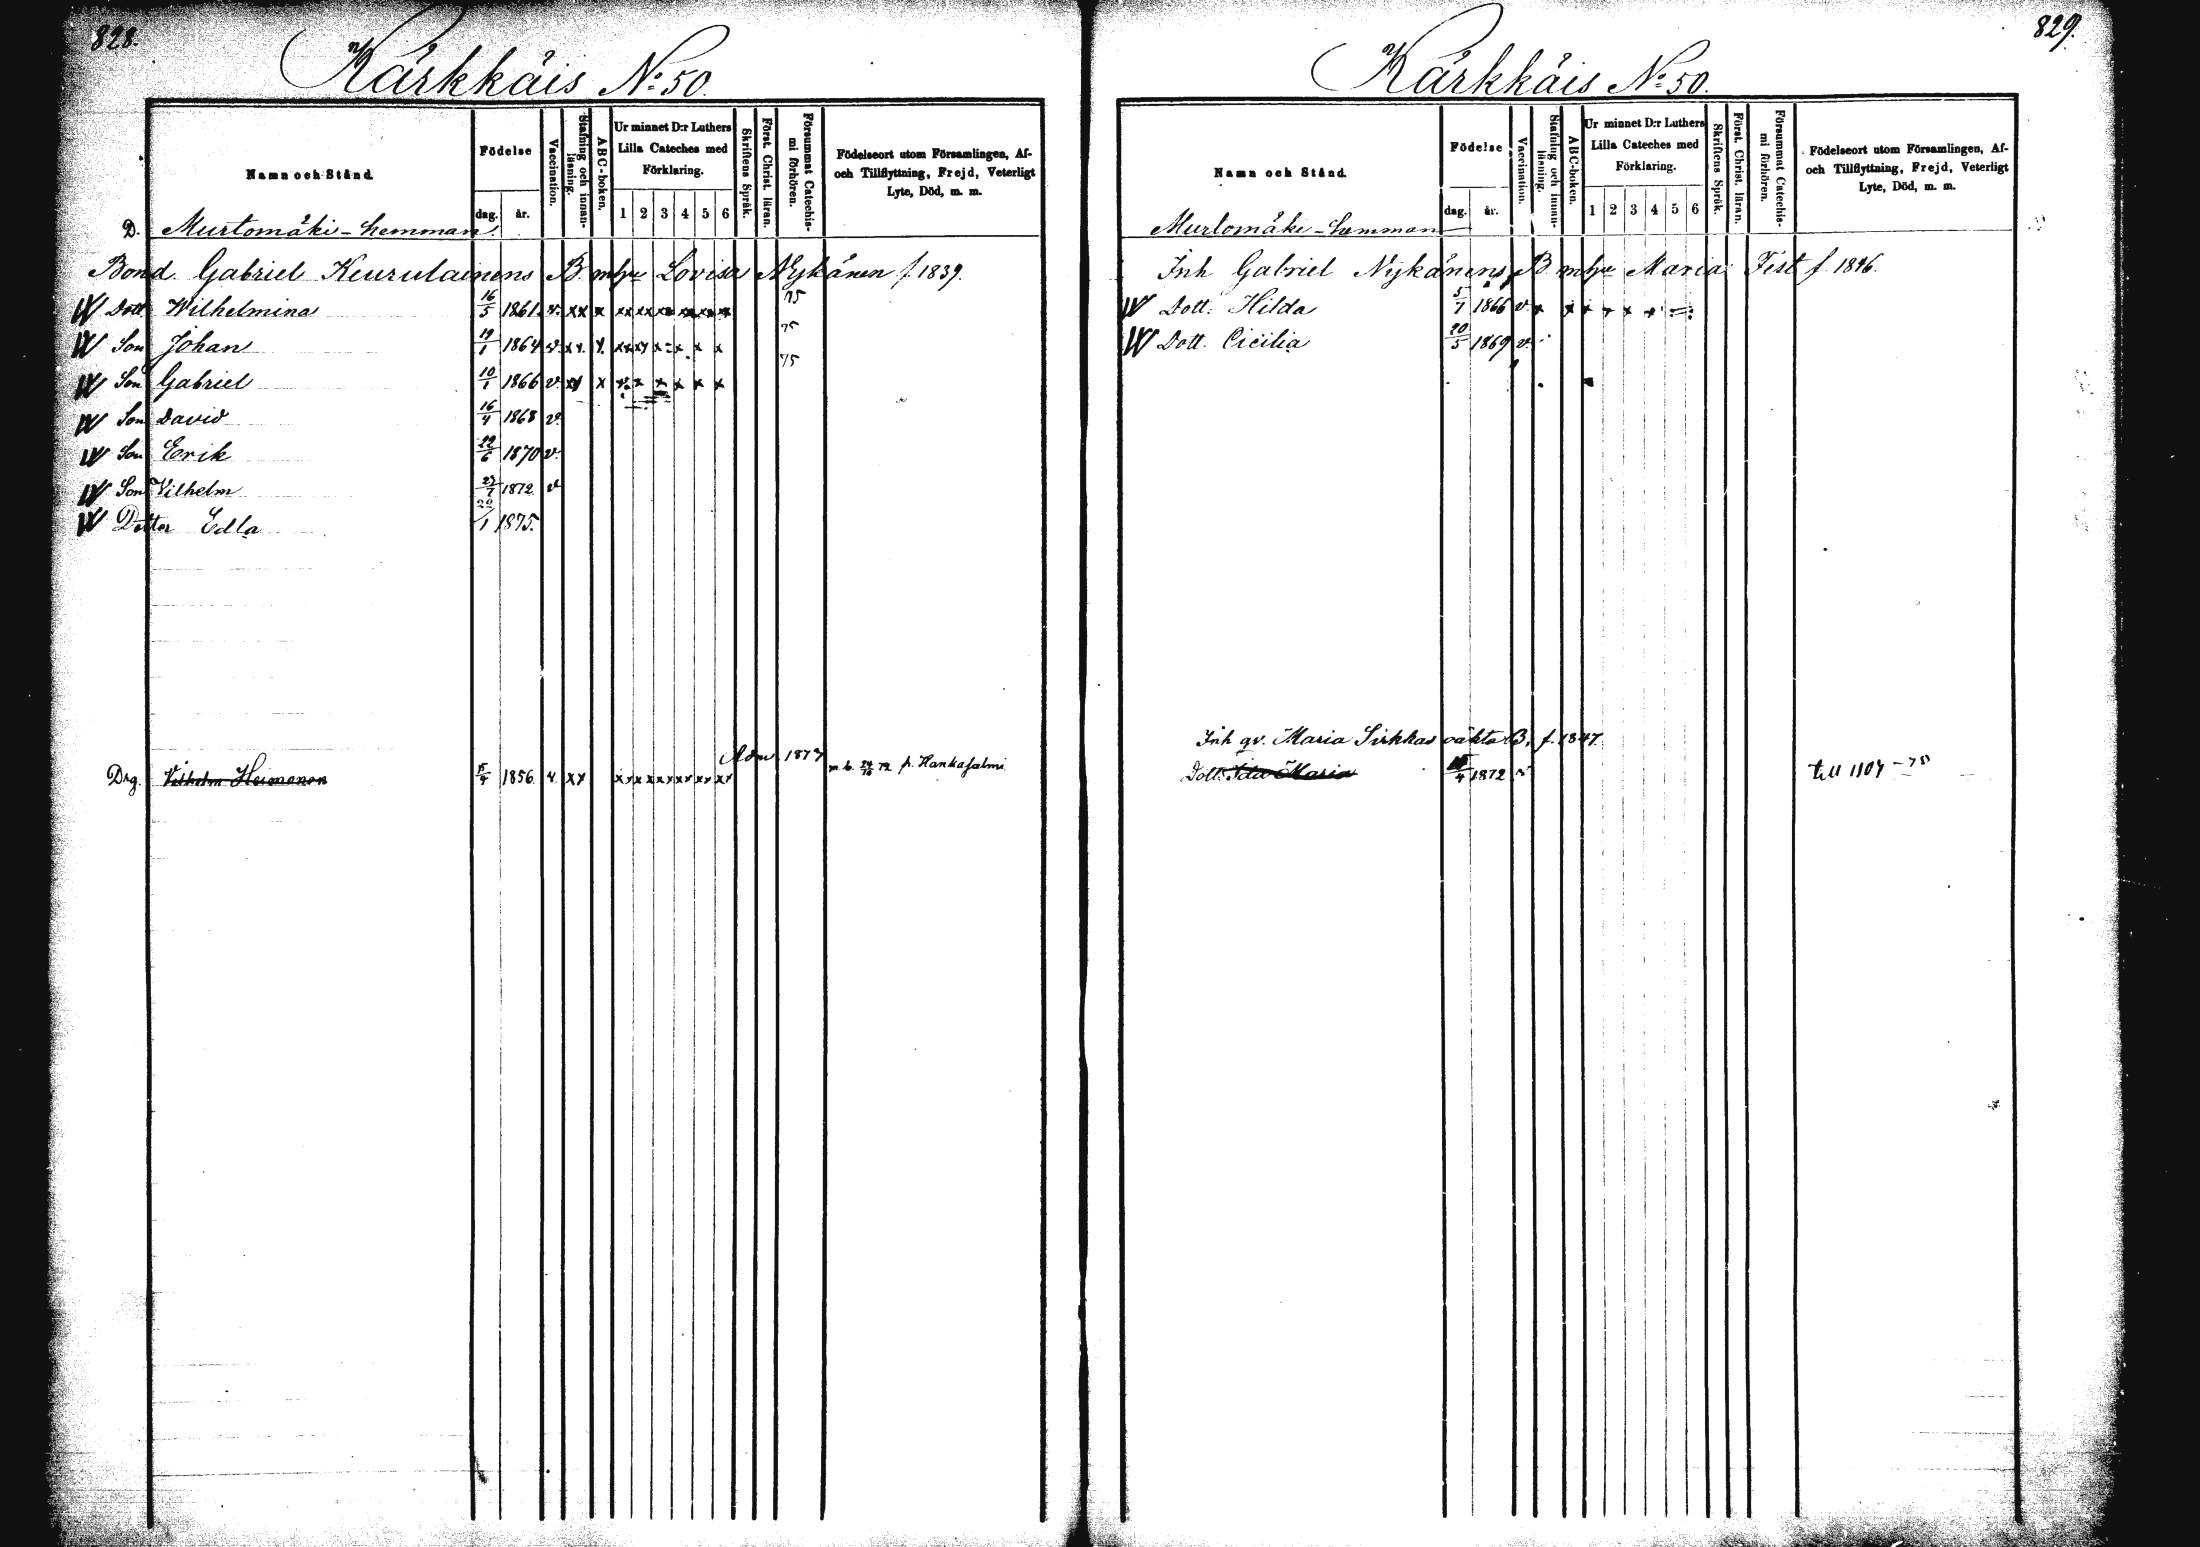 828.
Kärkkäis No: 50.
Namn och Stånd.
Födelse
dag. år.
Vaccination.
Stafning och innan-läsning.
ABC-boken.
Ur minnet D:r Luthers Lilla Cateches med Förklaring.
1 2 3 4 5 6
Skriftens Språk.
Förest. Christ. läran.
Försummat Catechis-mi förhören.
Födelseort utom Församlingen, Af- och Tillflyttning, Frejd, Veterligt Lyte, Död, m. m.
D. Murtomäki-hemman
Bond. Gabriel Keurulainens B. Lovisa Nykänen f. 1839.
Dott. Wilhelmina 16/5 1861 v. xx x xx xx xx xx xx xx 75
Son Johan 19/1 1864 v. 75
Son Gabriel 10/1 1866 v. 75
Son David 16/4 1868 v.
Son Erik 22/6 1870 v.
Son Vilhelm 27/7 1872 v
Dotter Edla 22/1 1875.
Adm 1873
Drg. Vilhelm Heimonen 15/4 1856. v. xx xx xx xx xx xx xx 72 fr. Hankasalmi
829.
Kärkkäis No: 50.
Namn och Stånd.
Födelse
dag. år.
Vaccination.
Stafning och innan-läsning.
ABC-boken.
Ur minnet D:r Luthers Lilla Cateches med Förklaring.
1 2 3 4 5 6
Skriftens Språk.
Förest. Christ. läran.
Försummat Catechis-mi förhören.
Födelseort utom Församlingen, Af- och Tillflyttning, Frejd, Veterligt Lyte, Död, m. m.
Murtomäki-hemman
Inh Gabriel Nykänens B. Maria Fist f. 1846.
Dott: Hilda 5/7 1866 v.
Dott. Cicilia 20/5 1869 v.
Inh qv. Maria Sirkkas oäkta B. f. 1847.
Dott: Ida Maria 1872 v
till 1107 -75